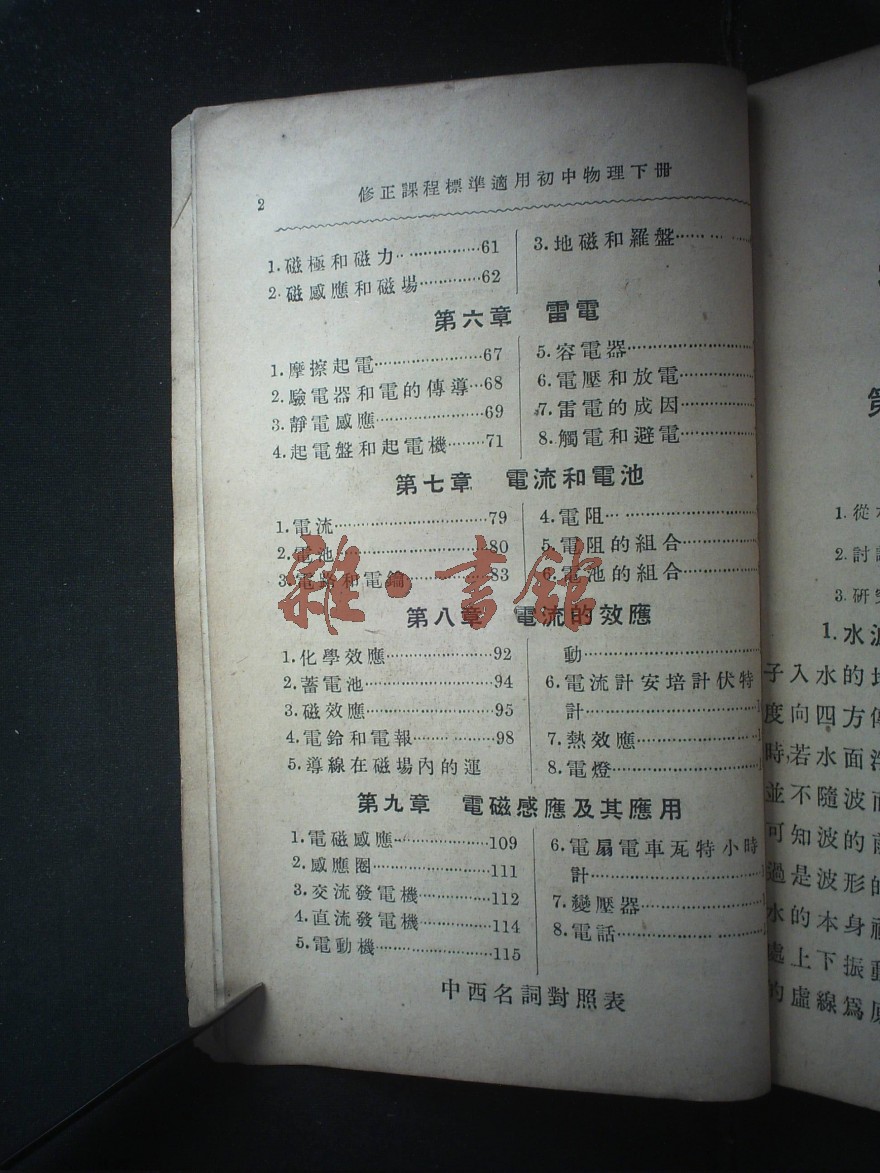 2
修正課程標準適用初中物理下冊
1.磁極和磁力………………61
2.磁感應和磁場…………62
3.地磁和羅盤…………
第六章 雷電
1.摩擦起電…………………67
2.驗電器和電的傳導…68
3.靜電感應…………………69
4.起電盤和起電機………71
5.容電器…………………
6.電壓和放電……………
7.雷電的成因……………
8.觸電和避電……………
第七章 電流和電池
1.電流…………………………79
2.電池…………………………80
3.電路和電鑰………………83
4.電阻…………………………
5.電阻的組合………………
6.電池的組合………………
第八章 電流的效應
1.化學效應…………………92
2.蓄電池……………………94
3.磁效應……………………95
4.電鈴和電報………………98
5.導線在磁場內的運
動……………………………
6.電流計安培計伏特
計……………………………1
7.熱效應……………………1
8.電燈………………………1
第九章 電磁感應及其應用
1.電磁感應………………109
2.感應圈…………………111
3.交流發電機……………112
4.直流發電機……………114
5.電動機…………………115
6.電扇電車瓦特小時
計……………………………1
7.變壓器……………………1
8.電話………………………1
中西名詞對照表
雜·書館
1.從
2.討
3.研究
1.水波
子入水的
度向四方傳
時,若水面浮
並不隨波而
可知波的前
過是波形的
水的本身
處上下振動
的虛線爲